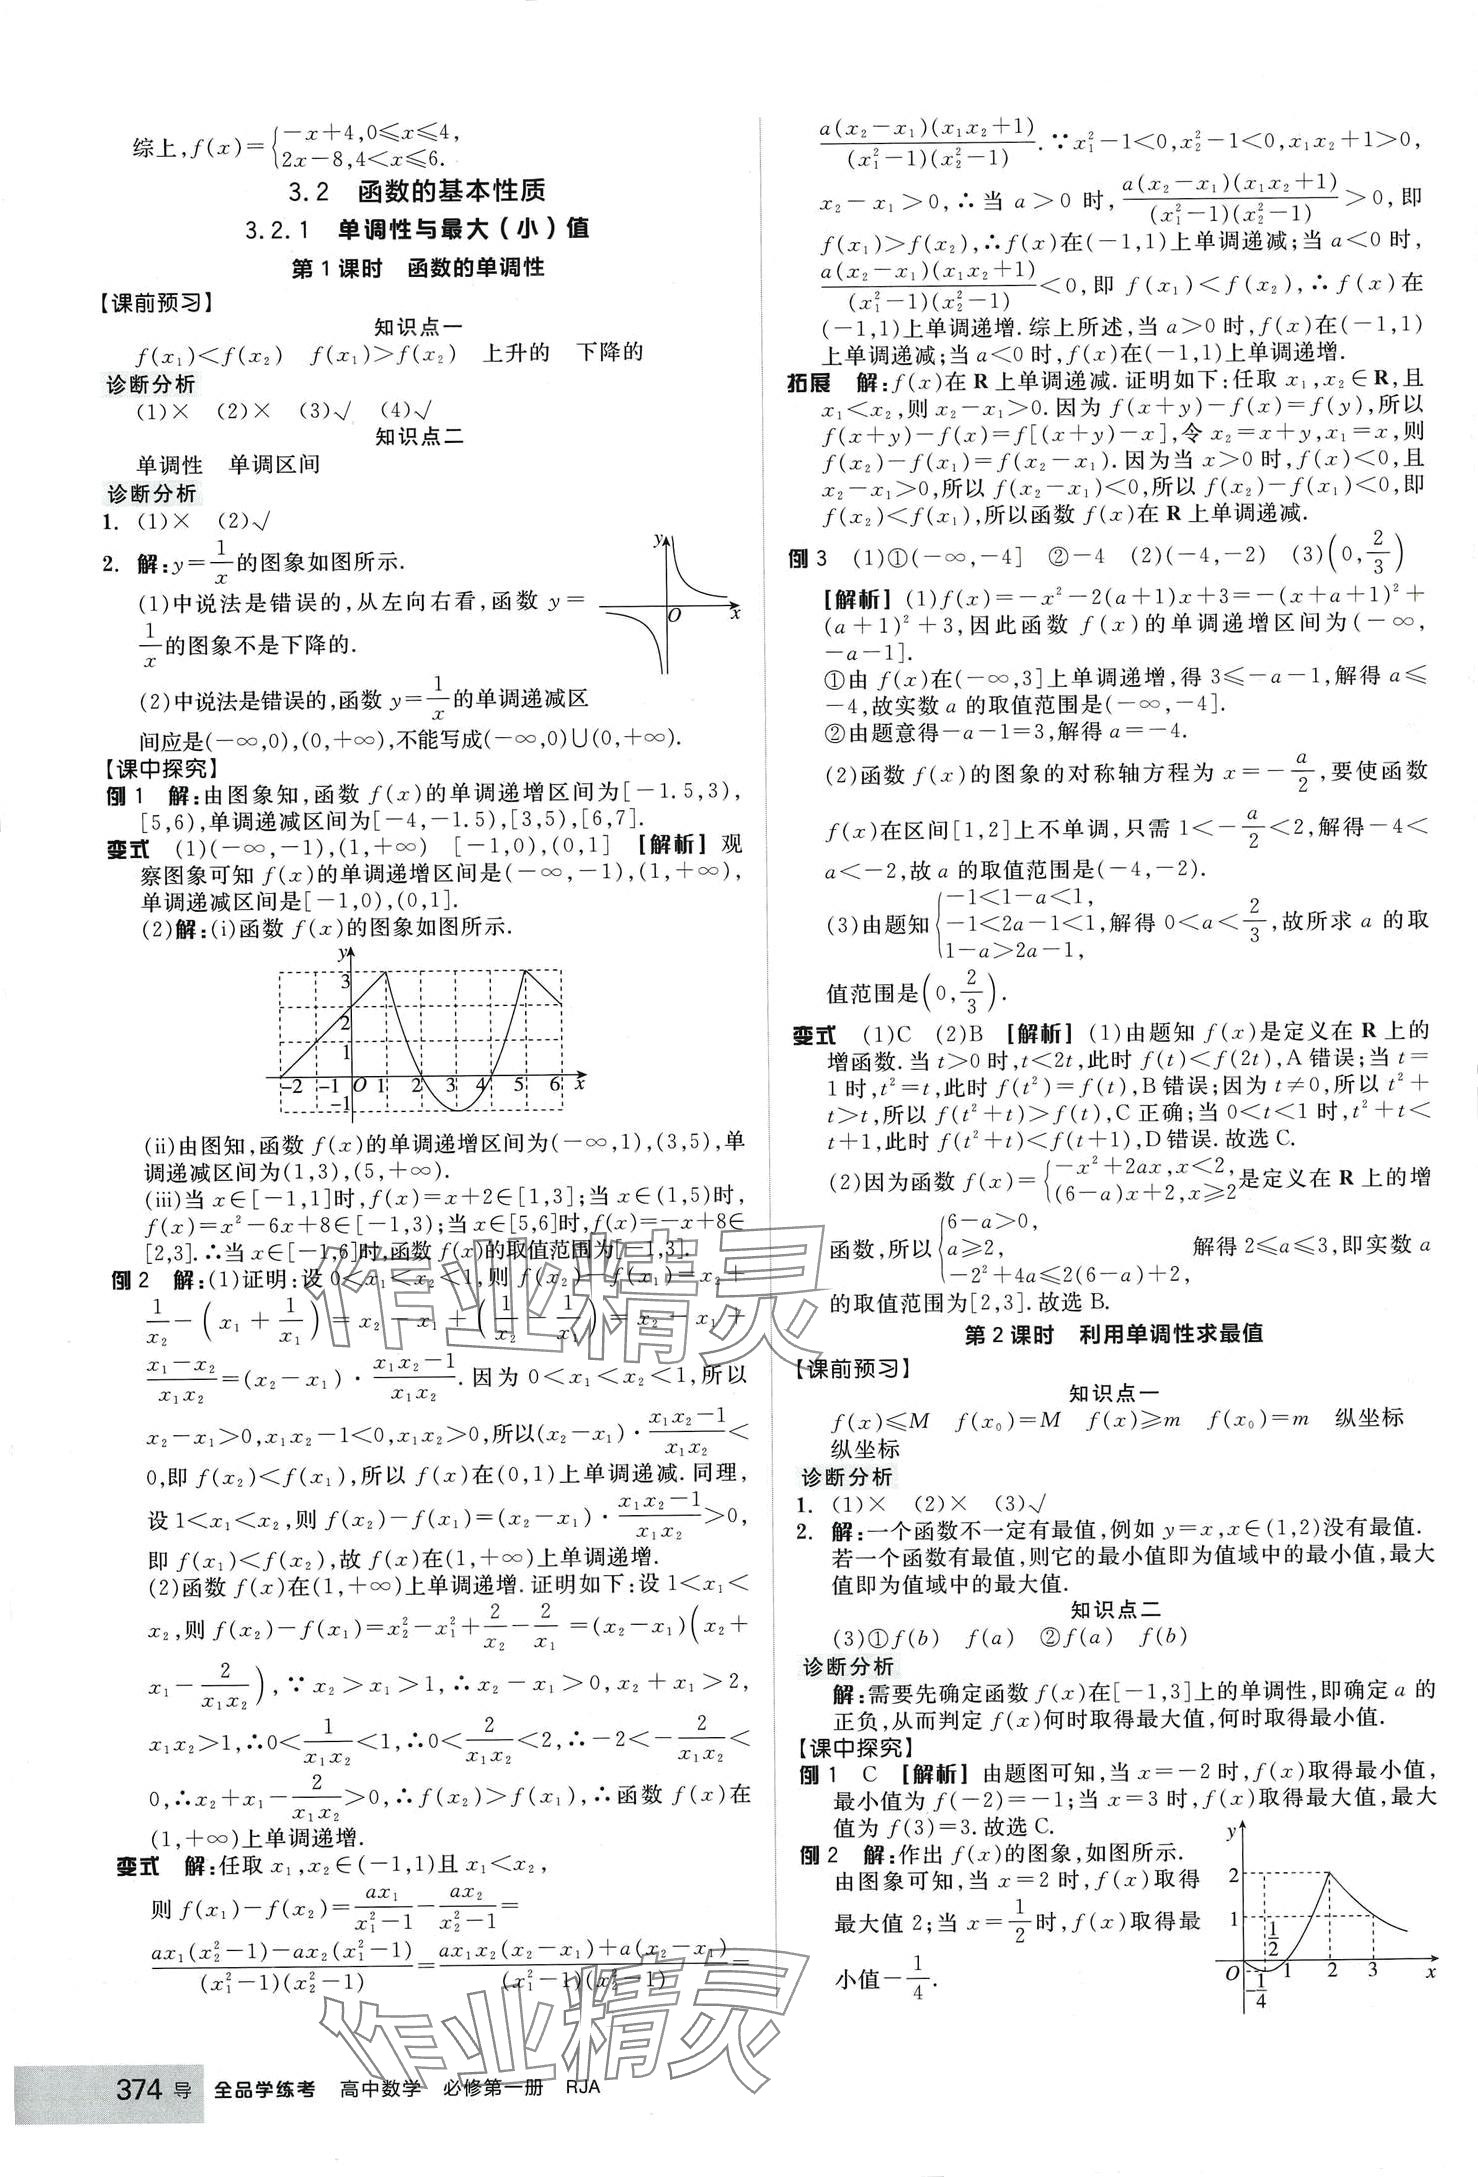 综上,f(x)={−x+4,0⩽x⩽4,
2x−8,4<x⩽6.
3.2 函数的基本性质
3.2.1 单调性与最大(小)值
第1课时 函数的单调性
【课前预习】
知识点一
f(x₁)<f(x₂) f(x₁)>f(x₂) 上升的 下降的
诊断分析
(1)× (2)× (3)√ (4)√
知识点二
单调性 单调区间
诊断分析
1. (1)× (2)√
2. 解:y=1/x的图象如图所示.
(1)中说法是错误的,从左向右看,函数 y=
1/x的图象不是下降的.
(2)中说法是错误的,函数 y=1/x的单调递减区
间应是(−∞,0),(0,+∞),不能写成(−∞,0)∪(0,+∞).
y
O
x
【课中探究】
例1 解:由图象知,函数 f(x)的单调递增区间为[−1.5,3),
[5,6),单调递减区间为[−4,−1.5),[3,5),[6,7].
变式 (1)(−∞,−1),(1,+∞) [−1,0),(0,1] [解析] 观
察图象可知 f(x)的单调递增区间是(−∞,−1),(1,+∞),
单调递减区间是[−1,0),(0,1].
(2)解:(i)函数 f(x)的图象如图所示.
y
3
2
1
−2 −1 O 1 2 3 4 5 6 x
−1
(ii)由图知,函数 f(x)的单调递增区间为(−∞,1),(3,5),单
调递减区间为(1,3),(5,+∞).
(iii)当 x∈[−1,1]时,f(x)=x+2∈[1,3];当 x∈(1,5)时,
f(x)=x²−6x+8∈[−1,3);当 x∈[5,6]时,f(x)=−x+8∈
[2,3].∴当 x∈[−1,6]时,函数 f(x)的取值范围为[−1,3].
例2 解:(1)证明:设 0<x₁<x₂<1,则 f(x₂)−f(x₁)=x₂+
1/x₂−(x₁+1/x₁)=x₂−x₁+(1/x₂−1/x₁)=x₂−x₁+
(x₁−x₂)/(x₁x₂)=(x₂−x₁)·(x₁x₂−1)/(x₁x₂).因为 0<x₁<x₂<1,所以
x₂−x₁>0,x₁x₂−1<0,x₁x₂>0,所以(x₂−x₁)·(x₁x₂−1)/(x₁x₂)<
0,即 f(x₂)<f(x₁),所以 f(x)在(0,1)上单调递减.同理,
设 1<x₁<x₂,则 f(x₂)−f(x₁)=(x₂−x₁)·(x₁x₂−1)/(x₁x₂)>0,
即 f(x₁)<f(x₂),故 f(x)在(1,+∞)上单调递增.
(2)函数 f(x)在(1,+∞)上单调递增.证明如下:设 1<x₁<
x₂,则 f(x₂)−f(x₁)=x₂²−x₁²+2/x₂−2/x₁=(x₂−x₁)(x₂+
x₁−2/(x₁x₂)),∵x₂>x₁>1,∴x₂−x₁>0,x₂+x₁>2,
x₁x₂>1,∴0<1/(x₁x₂)<1,∴0<2/(x₁x₂)<2,∴−2<−2/(x₁x₂)<
0,∴x₂+x₁−2/(x₁x₂)>0,∴f(x₂)>f(x₁),∴函数 f(x)在
(1,+∞)上单调递增.
变式 解:任取 x₁,x₂∈(−1,1)且 x₁<x₂,
则 f(x₁)−f(x₂)=ax₁/(x₁²−1)−ax₂/(x₂²−1)=
(ax₁(x₂²−1)−ax₂(x₁²−1))/((x₁²−1)(x₂²−1))=(ax₁x₂(x₂−x₁)+a(x₂−x₁))/((x₁²−1)(x₂²−1))=
a(x₂−x₁)(x₁x₂+1)/((x₁²−1)(x₂²−1)).∵x₁²−1<0,x₂²−1<0,x₁x₂+1>0,
x₂−x₁>0,∴当 a>0 时,a(x₂−x₁)(x₁x₂+1)/((x₁²−1)(x₂²−1))>0,即
f(x₁)>f(x₂),∴f(x)在(−1,1)上单调递减;当 a<0 时,
a(x₂−x₁)(x₁x₂+1)/((x₁²−1)(x₂²−1))<0,即 f(x₁)<f(x₂),∴f(x)在
(−1,1)上单调递增.综上所述,当 a>0 时,f(x)在(−1,1)
上单调递减;当 a<0 时,f(x)在(−1,1)上单调递增.
拓展 解:f(x)在 R 上单调递减.证明如下:任取 x₁,x₂∈R,且
x₁<x₂,则 x₂−x₁>0.因为 f(x+y)−f(x)=f(y),所以
f(x+y)−f(x)=f[(x+y)−x],令 x₂=x+y,x₁=x,则
f(x₂)−f(x₁)=f(x₂−x₁).因为当 x>0 时,f(x)<0,且
x₂−x₁>0,所以 f(x₂−x₁)<0,所以 f(x₂)−f(x₁)<0,即
f(x₂)<f(x₁),所以函数 f(x)在 R 上单调递减.
例3 (1)①(−∞,−4] ②−4 (2)(−4,−2) (3)(0,2/3)
[解析] (1)f(x)=−x²−2(a+1)x+3=−(x+a+1)²+
(a+1)²+3,因此函数 f(x)的单调递增区间为(−∞,
−a−1].
①由 f(x)在(−∞,3]上单调递增,得 3⩽−a−1,解得 a⩽
−4,故实数 a 的取值范围是(−∞,−4].
②由题意得−a−1=3,解得 a=−4.
(2)函数 f(x)的图象的对称轴方程为 x=−a/2,要使函数
f(x)在区间[1,2]上不单调,只需 1<−a/2<2,解得−4<
a<−2,故 a 的取值范围是(−4,−2).
(3)由题知{−1<1−a<1,
−1<2a−1<1,
1−a>2a−1,
解得 0<a<2/3,故所求 a 的取
值范围是(0,2/3).
变式 (1)C (2)B [解析] (1)由题知 f(x)是定义在 R 上的
增函数.当 t>0 时,t<2t,此时 f(t)<f(2t),A 错误;当 t=
1时,t²=t,此时 f(t²)=f(t),B错误;因为 t≠0,所以 t²+
t>t,所以 f(t²+t)>f(t),C 正确;当 0<t<1 时,t²+t<
t+1,此时 f(t²+t)<f(t+1),D 错误.故选 C.
(2)因为函数 f(x)={−x²+2ax,x<2,
(6−a)x+2,x⩾2
是定义在 R 上的增
函数,所以{6−a>0,
a⩾2,
−2²+4a⩽2(6−a)+2,
解得 2⩽a⩽3,即实数 a
的取值范围为[2,3].故选 B.
第2课时 利用单调性求最值
【课前预习】
知识点一
f(x)⩽M f(x₀)=M f(x)⩾m f(x₀)=m 纵坐标
纵坐标
诊断分析
1. (1)× (2)× (3)√
2. 解:一个函数不一定有最值,例如 y=x,x∈(1,2)没有最值.
若一个函数有最值,则它的最小值即为值域中的最小值,最大
值即为值域中的最大值.
知识点二
(3)①f(b) f(a) ②f(a) f(b)
诊断分析
解:需要先确定函数 f(x)在[−1,3]上的单调性,即确定 a 的
正负,从而判定 f(x)何时取得最大值,何时取得最小值.
【课中探究】
例1 C [解析] 由题图可知,当 x=−2 时,f(x)取得最小值,
最小值为 f(−2)=−1;当 x=3 时,f(x)取得最大值,最大
值为 f(3)=3.故选 C.
例2 解:作出 f(x)的图象,如图所示.
由图象可知,当 x=2 时,f(x)取得
最大值 2;当 x=1/2时,f(x)取得最
小值−1/4.
y
2
1
1/2
O 1 2 3 x
−1/4
作业精灵
作业精灵
374 导 全品学练考 高中数学 必修第一册 RJA